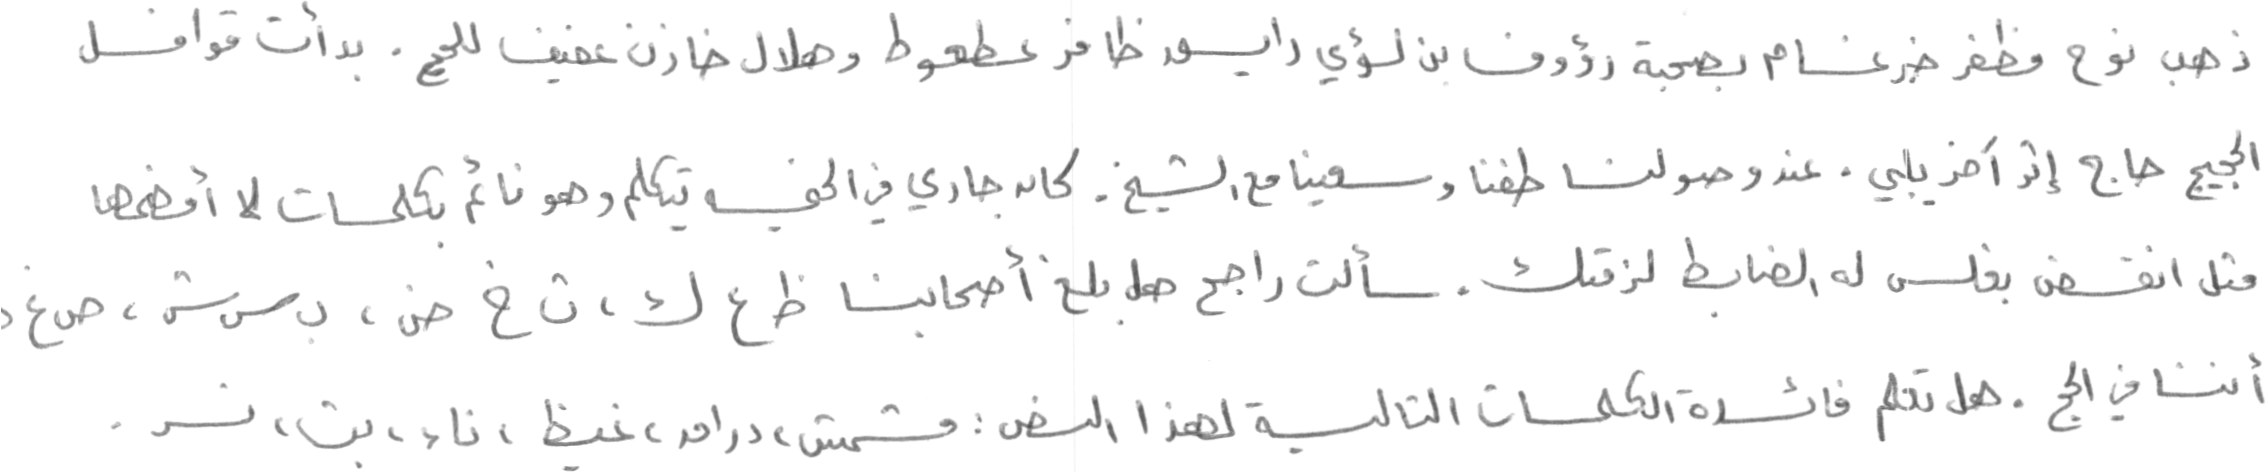 ذهب نوح مظفر ضرغام بصحبة رؤوف بن لؤي راىس ظافر عطعوط وهلال خازن عفيف للحج . بدأت قوافل
الحجيج حاج إثر آخر يلبي . عند وصولنا طفنا وسعينا مع الشيخ . كان جاري في الخيمة يتكلم وهو نائم بكلمات لا أفهمها
مثل انقض بفلس له الضابط لزقتك . سألت راجح هل بلغ أصحابنا ظ غ ك ، ث خ ض ، ب س ش ، ص غ د
أننا في الحج . هل تعلم فائدة الكلمات التالية لهذا النص : مشمش ، دراق ، غيظ ، ناء ، بث ، نسر .